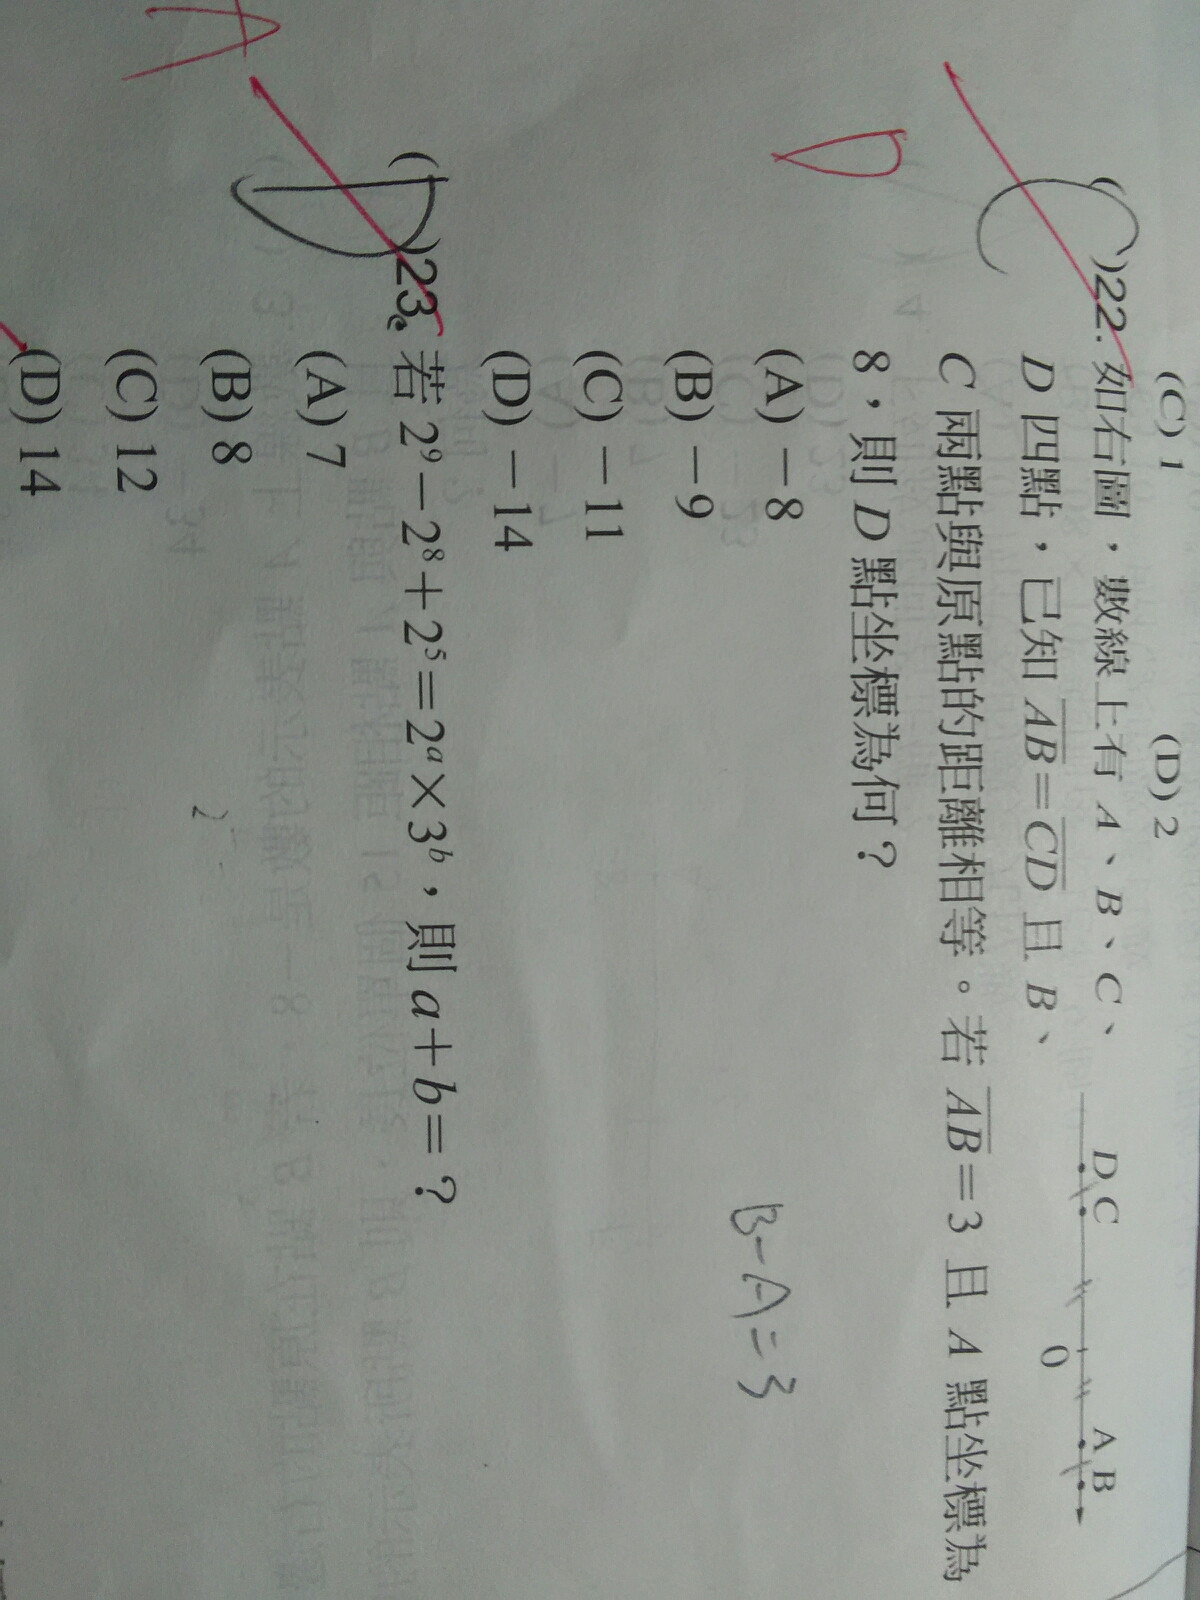 (C) 1 (D) 2
( C )22. 如右圖，數線上有 A、B、C、
D 四點，已知 AB=CD 且 B、
C 兩點與原點的距離相等。若 AB=3 且 A 點坐標為
8，則 D 點坐標為何？
D C 0 A B
D
(A) －8
(B) －9
(C) －11
(D) －14
B-A=3
( D )23. 若 2⁹－2⁸＋2⁵＝2ᵃ×3ᵇ，則 a＋b＝？
A
(A) 7
(B) 8
(C) 12
(D) 14